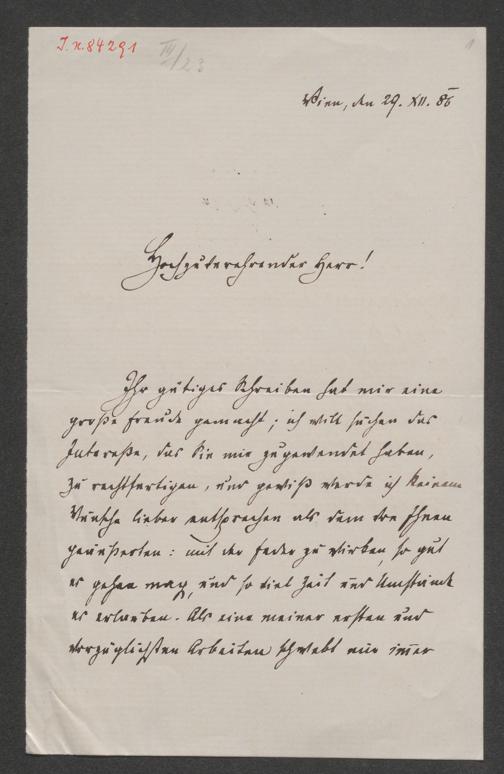 J. N. 84291
III/23
Wien, den 29. XII. 86
Hochzuverehrender Herr!
Ihr gütiges Schreiben hat mir eine
große Freude gemacht; ich will suchen das
Interesse, das Sie mir zugewendet haben,
zu rechtfertigen, und gewiß werde ich keinem
Wunsche lieber entsprechen als dem von Ihnen
geäußerten: mit der Feder zu wirken, so gut
es gehen mag, und so viel Zeit und Umstände
es erlauben. Als eine meiner ersten und
vorzüglichsten Arbeiten schwebt mir immer